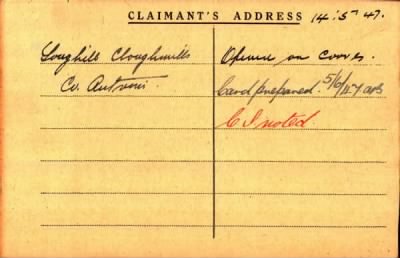 CLAIMANT'S ADDRESS 14.5.47.
Loughill Cloughmills
Co. Antrim.
Opened on cover.
Card prepared. 5/6/47
C I noted.